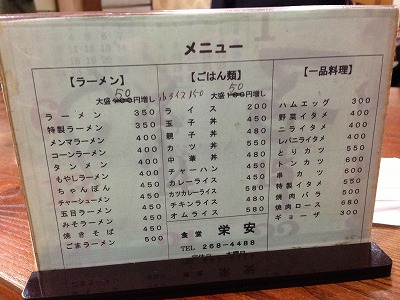 メニュー
【ラーメン】
50
大盛100円増し
ラーメン 350
特製ラーメン 350
メンマラーメン 400
コーンラーメン 400
タンメン 400
もやしラーメン 400
ちゃんぽん 450
チャーシューメン 450
五目ラーメン 450
みそラーメン 450
焼きそば 450
ごまラーメン 500
【ごはん類】
50
小ライス150 大盛100円増し
ライス 200
玉子丼 450
親子丼 480
カツ丼 550
中華丼 480
チャーハン 450
カレーライス 450
カツカレーライス 580
チキンライス 480
オムライス 580
【一品料理】
ハムエッグ 300
野菜イタメ 400
ニライタメ 400
レバニライタメ 450
とりカツ 550
トンカツ 600
串カツ 600
特製イタメ 550
焼肉バラ 500
焼肉ロース 680
ギョーザ 300
食堂 栄安
TEL 268-4488